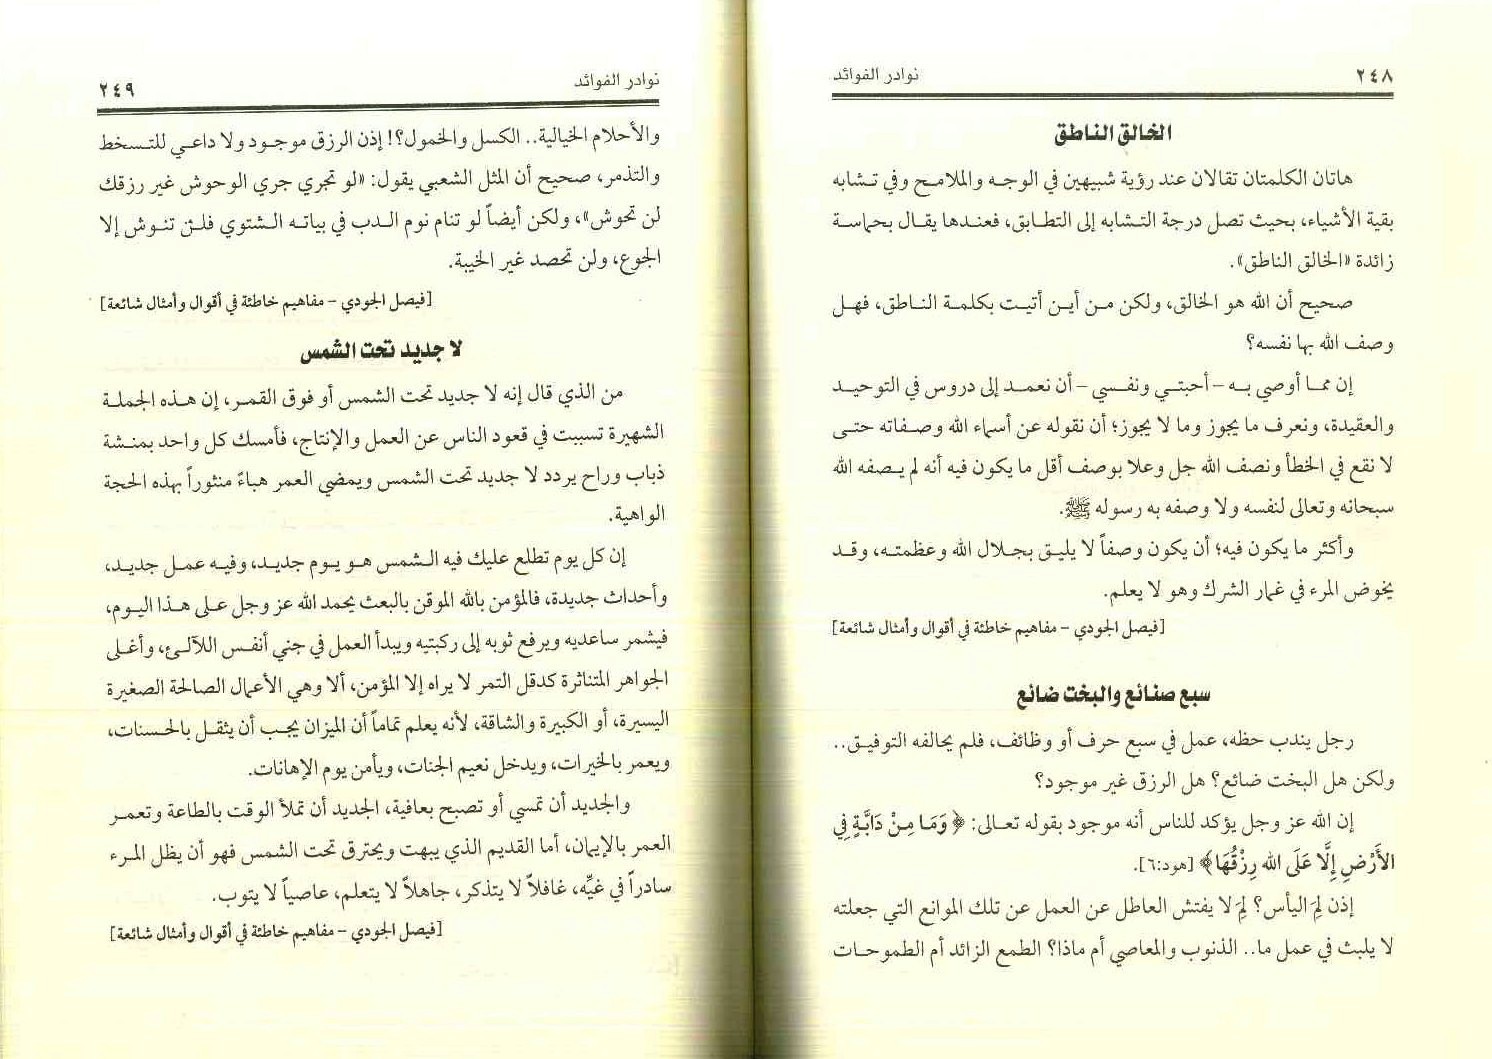 ٢٤٨
نوادر الفوائد
الخالق الناطق
هاتان الكلمتان تقالان عند رؤية شبيهين في الوجه والملامح وفي تشابه
بقية الأشياء، بحيث تصل درجة التشابه إلى التطابق، فعندها يقال بحماسة
زائدة «الخالق الناطق».
صحيح أن الله هو الخالق، ولكن من أين أتيت بكلمة الناطق، فهل
وصف الله بها نفسه؟
إن مما أوصي به –أحبتي ونفسي– أن نعمد إلى دروس في التوحيد
والعقيدة، ونعرف ما يجوز وما لا يجوز؛ أن نقوله عن أسماء الله وصفاته حتى
لا نقع في الخطأ ونصف الله جل وعلا بوصف أقل ما يكون فيه أنه لم يصفه الله
سبحانه وتعالى لنفسه ولا وصفه به رسوله ﷺ.
وأكثر ما يكون فيه؛ أن يكون وصفاً لا يليق بجلال الله وعظمته، وقد
يخوض المرء في غمار الشرك وهو لا يعلم.
[فيصل الجودي – مفاهيم خاطئة في أقوال وأمثال شائعة]
سبع صنائع والبخت ضائع
رجل يندب حظه، عمل في سبع حرف أو وظائف، فلم يحالفه التوفيق..
ولكن هل البخت ضائع؟ هل الرزق غير موجود؟
إن الله عز وجل يؤكد للناس أنه موجود بقوله تعالى: ﴿ وَمَا مِنْ دَابَّةٍ فِي
الأَرْضِ إِلَّا عَلَى الله رِزْقُهَا﴾ [هود:٦].
إذن لِمَ اليأس؟ لِمَ لا يفتش العاطل عن العمل عن تلك الموانع التي جعلته
لا يلبث في عمل ما.. الذنوب والمعاصي أم ماذا؟ الطمع الزائد أم الطموحات
نوادر الفوائد
٢٤٩
والأحلام الخيالية.. الكسل والخمول؟! إذن الرزق موجود ولا داعي للتسخط
والتذمر، صحيح أن المثل الشعبي يقول: «لو تجري جري الوحوش غير رزقك
لن تحوش»، ولكن أيضاً لو تنام نوم الدب في بياته الشتوي فلن تنوش إلا
الجوع، ولن تحصد غير الخيبة.
[فيصل الجودي – مفاهيم خاطئة في أقوال وأمثال شائعة]
لا جديد تحت الشمس
من الذي قال إنه لا جديد تحت الشمس أو فوق القمر، إن هذه الجملة
الشهيرة تسببت في قعود الناس عن العمل والإنتاج، فأمسك كل واحد بمنشة
ذباب وراح يردد لا جديد تحت الشمس ويمضي العمر هباءً منثوراً بهذه الحجة
الواهية.
إن كل يوم تطلع عليك فيه الشمس هو يوم جديد، وفيه عمل جديد،
وأحداث جديدة، فالمؤمن بالله الموقن بالبعث يحمد الله عز وجل على هذا اليوم،
فيشمر ساعديه ويرفع ثوبه إلى ركبتيه ويبدأ العمل في جني أنفس اللآلئ، وأغلى
الجواهر المتناثرة كدقل التمر لا يراه إلا المؤمن، ألا وهي الأعمال الصالحة الصغيرة
اليسيرة، أو الكبيرة والشاقة، لأنه يعلم تماماً أن الميزان يجب أن يثقل بالحسنات،
ويعمر بالخيرات، ويدخل نعيم الجنات، ويأمن يوم الإهانات.
والجديد أن تمسي أو تصبح بعافية، الجديد أن تملأ الوقت بالطاعة وتعمر
العمر بالإيمان، أما القديم الذي يبهت ويحترق تحت الشمس فهو أن يظل المرء
سادراً في غيِّه، غافلاً لا يتذكر، جاهلاً لا يتعلم، عاصياً لا يتوب.
[فيصل الجودي – مفاهيم خاطئة في أقوال وأمثال شائعة]